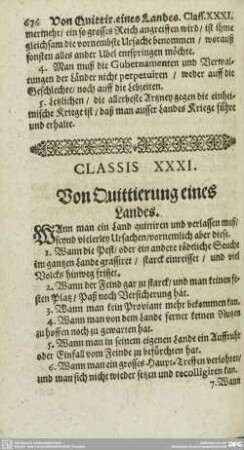 676 Von Quittir. eines Landes. Class. XXXI.
mermehr/ ein so grosses Reich angreiffen wird/ ist ihme
gleichsam die vornembste Ursache benommen / worauß
sonsten alles ander Ubel entspringen möchte.
4. Man muß die Gubernamenten und Verwal-
tungen der Länder nicht perpetuiren / weder auff die
Geschlechter/ noch auff die Lebzeiten.
5. Letzlichen / die allerbeste Artzney gegen die einhei-
mische Kriege ist/ daß man ausser Landes Kriege führe
und erhalte.
CLASSIS XXXI.
Von Quittierung eines
Landes.
Wann man ein Land quittiren und verlassen muß/
seynd vielerley Ursachen/ vornemlich aber diese.
1. Wann die Pest/ oder ein andere tödliche Seuche
im gantzen Lande grassiret / starck einreisset / und viel
Volcks hinweg frisset.
2. Wann der Feind gar zu starck/ und man keinen fe-
sten Platz/ Paß noch Versicherung hat.
3. Wann man kein Proviant mehr bekommen kan.
4. Wann man von dem Lande ferner keinen Nutzen
zu hoffen noch zu gewarten hat.
5. Wann man in seinem eigenen Lande ein Auffruhr
oder Einfall vom Feinde zu befürchten hat.
6. Wann man ein grosses Haupt-Treffen verlohren/
und man sich nicht wieder setzen und recolligiren kan.
7. Wann